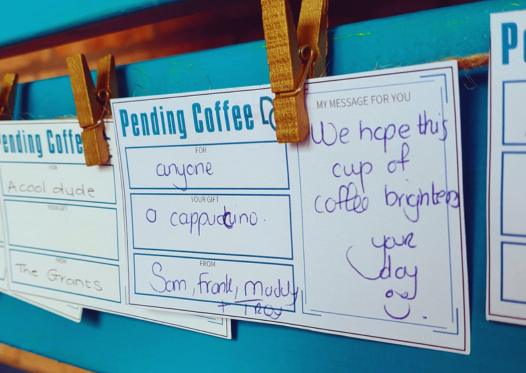 Pending Coffee
FOR
A cool dude
YOUR GIFT
FROM
The Grants
Pending Coffee
FOR
anyone
YOUR GIFT
a cappuccino.
FROM
Sam, Frank, Maddy
+ Troy
MY MESSAGE FOR YOU
We hope this
cup of
coffee brightens
your
day